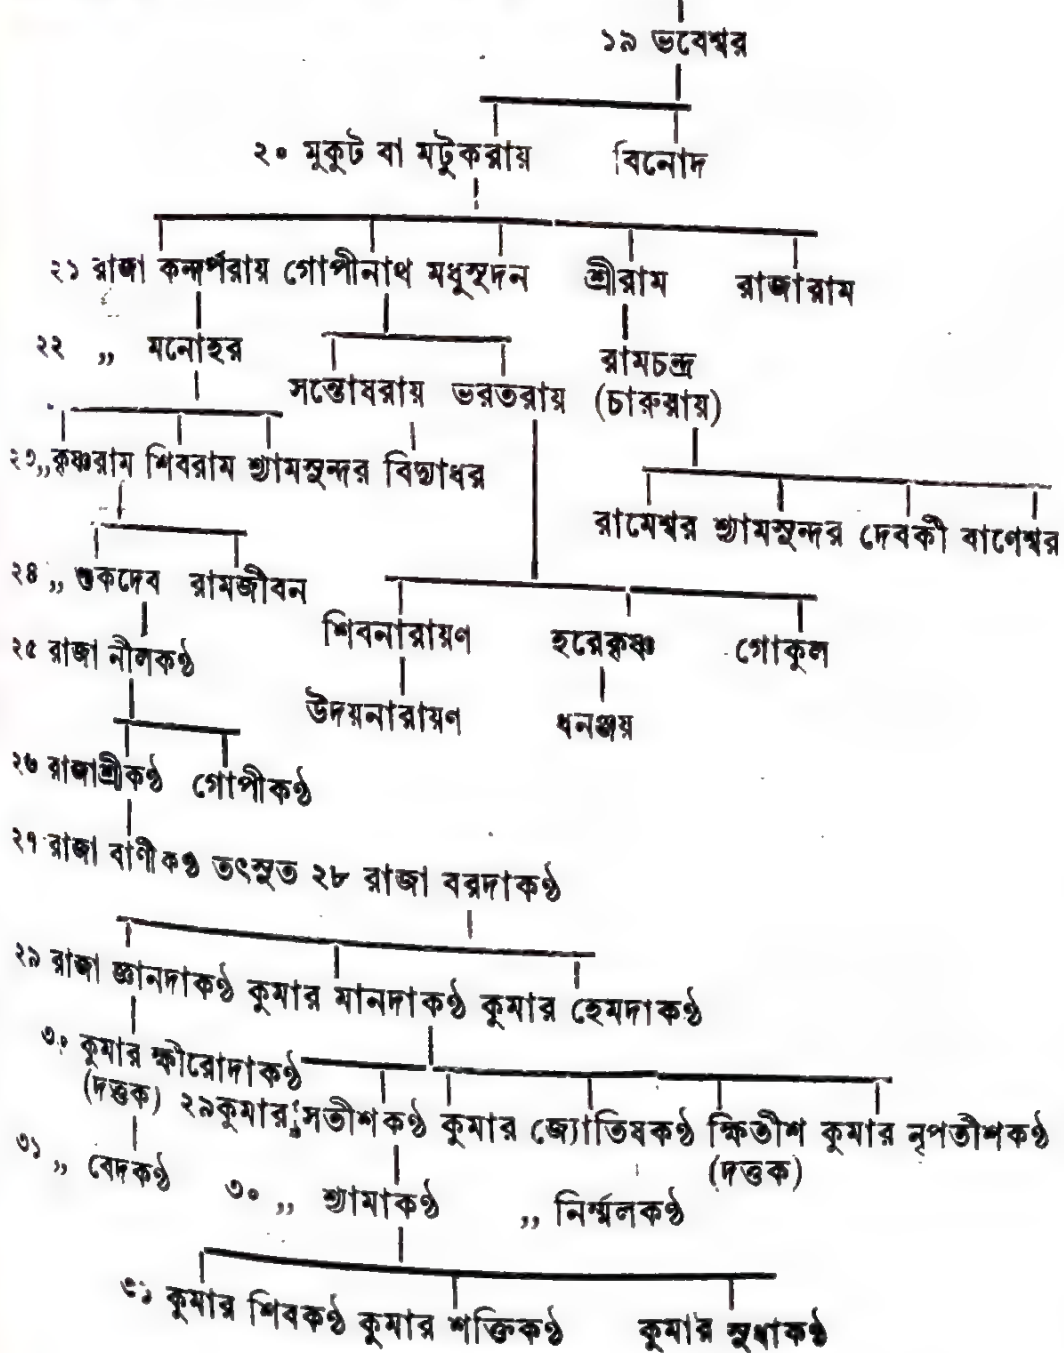 ১৯ ভবেশ্বর
২০ মুকুট বা মটুকরায় বিনোদ
২১ রাজা কন্দর্পরায় গোপীনাথ মধুসূদন শ্রীরাম রাজারাম
২২ ,, মনোহর
রামচন্দ্র
সন্তোষরায় ভরতরায় (চারুরায়)
২৩,,কৃষ্ণরাম শিবরাম শ্যামসুন্দর বিদ্যাধর
রামেশ্বর শ্যামসুন্দর দেবকী বাণেশ্বর
২৪ ,, শুকদেব রামজীবন
শিবনারায়ণ হরেকৃষ্ণ গোকুল
২৫ রাজা নীলকণ্ঠ
উদয়নারায়ণ ধনঞ্জয়
২৬ রাজাশ্রীকণ্ঠ গোপীকণ্ঠ
২৭ রাজা বাণীকণ্ঠ তৎসুত ২৮ রাজা বরদাকণ্ঠ
২৯ রাজা জ্ঞানদাকণ্ঠ কুমার মানদাকণ্ঠ কুমার হেমদাকণ্ঠ
৩০ কুমার ক্ষীরোদাকণ্ঠ
(দত্তক) ২৯কুমার সতীশকণ্ঠ কুমার জ্যোতিষকণ্ঠ ক্ষিতীশ কুমার নৃপতীশকণ্ঠ
(দত্তক)
৩১ ,, বেদকণ্ঠ
৩০ ,, শ্যামাকণ্ঠ ,, নির্ম্মলকণ্ঠ
৩১ কুমার শিবকণ্ঠ কুমার শক্তিকণ্ঠ কুমার সুধাকণ্ঠ